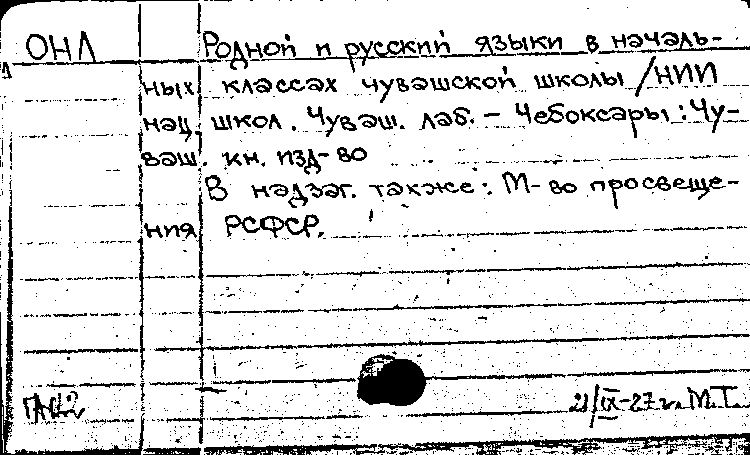 ОНЛ
Родной и русский языки в началь-
ных классах чувашской школы / НИИ
нац. школ. Чуваш. лаб. – Чебоксары : Чу-
ваш. кн. изд-во
В надзаг. также: М-во просвеще-
ния РСФСР.
М.Т.